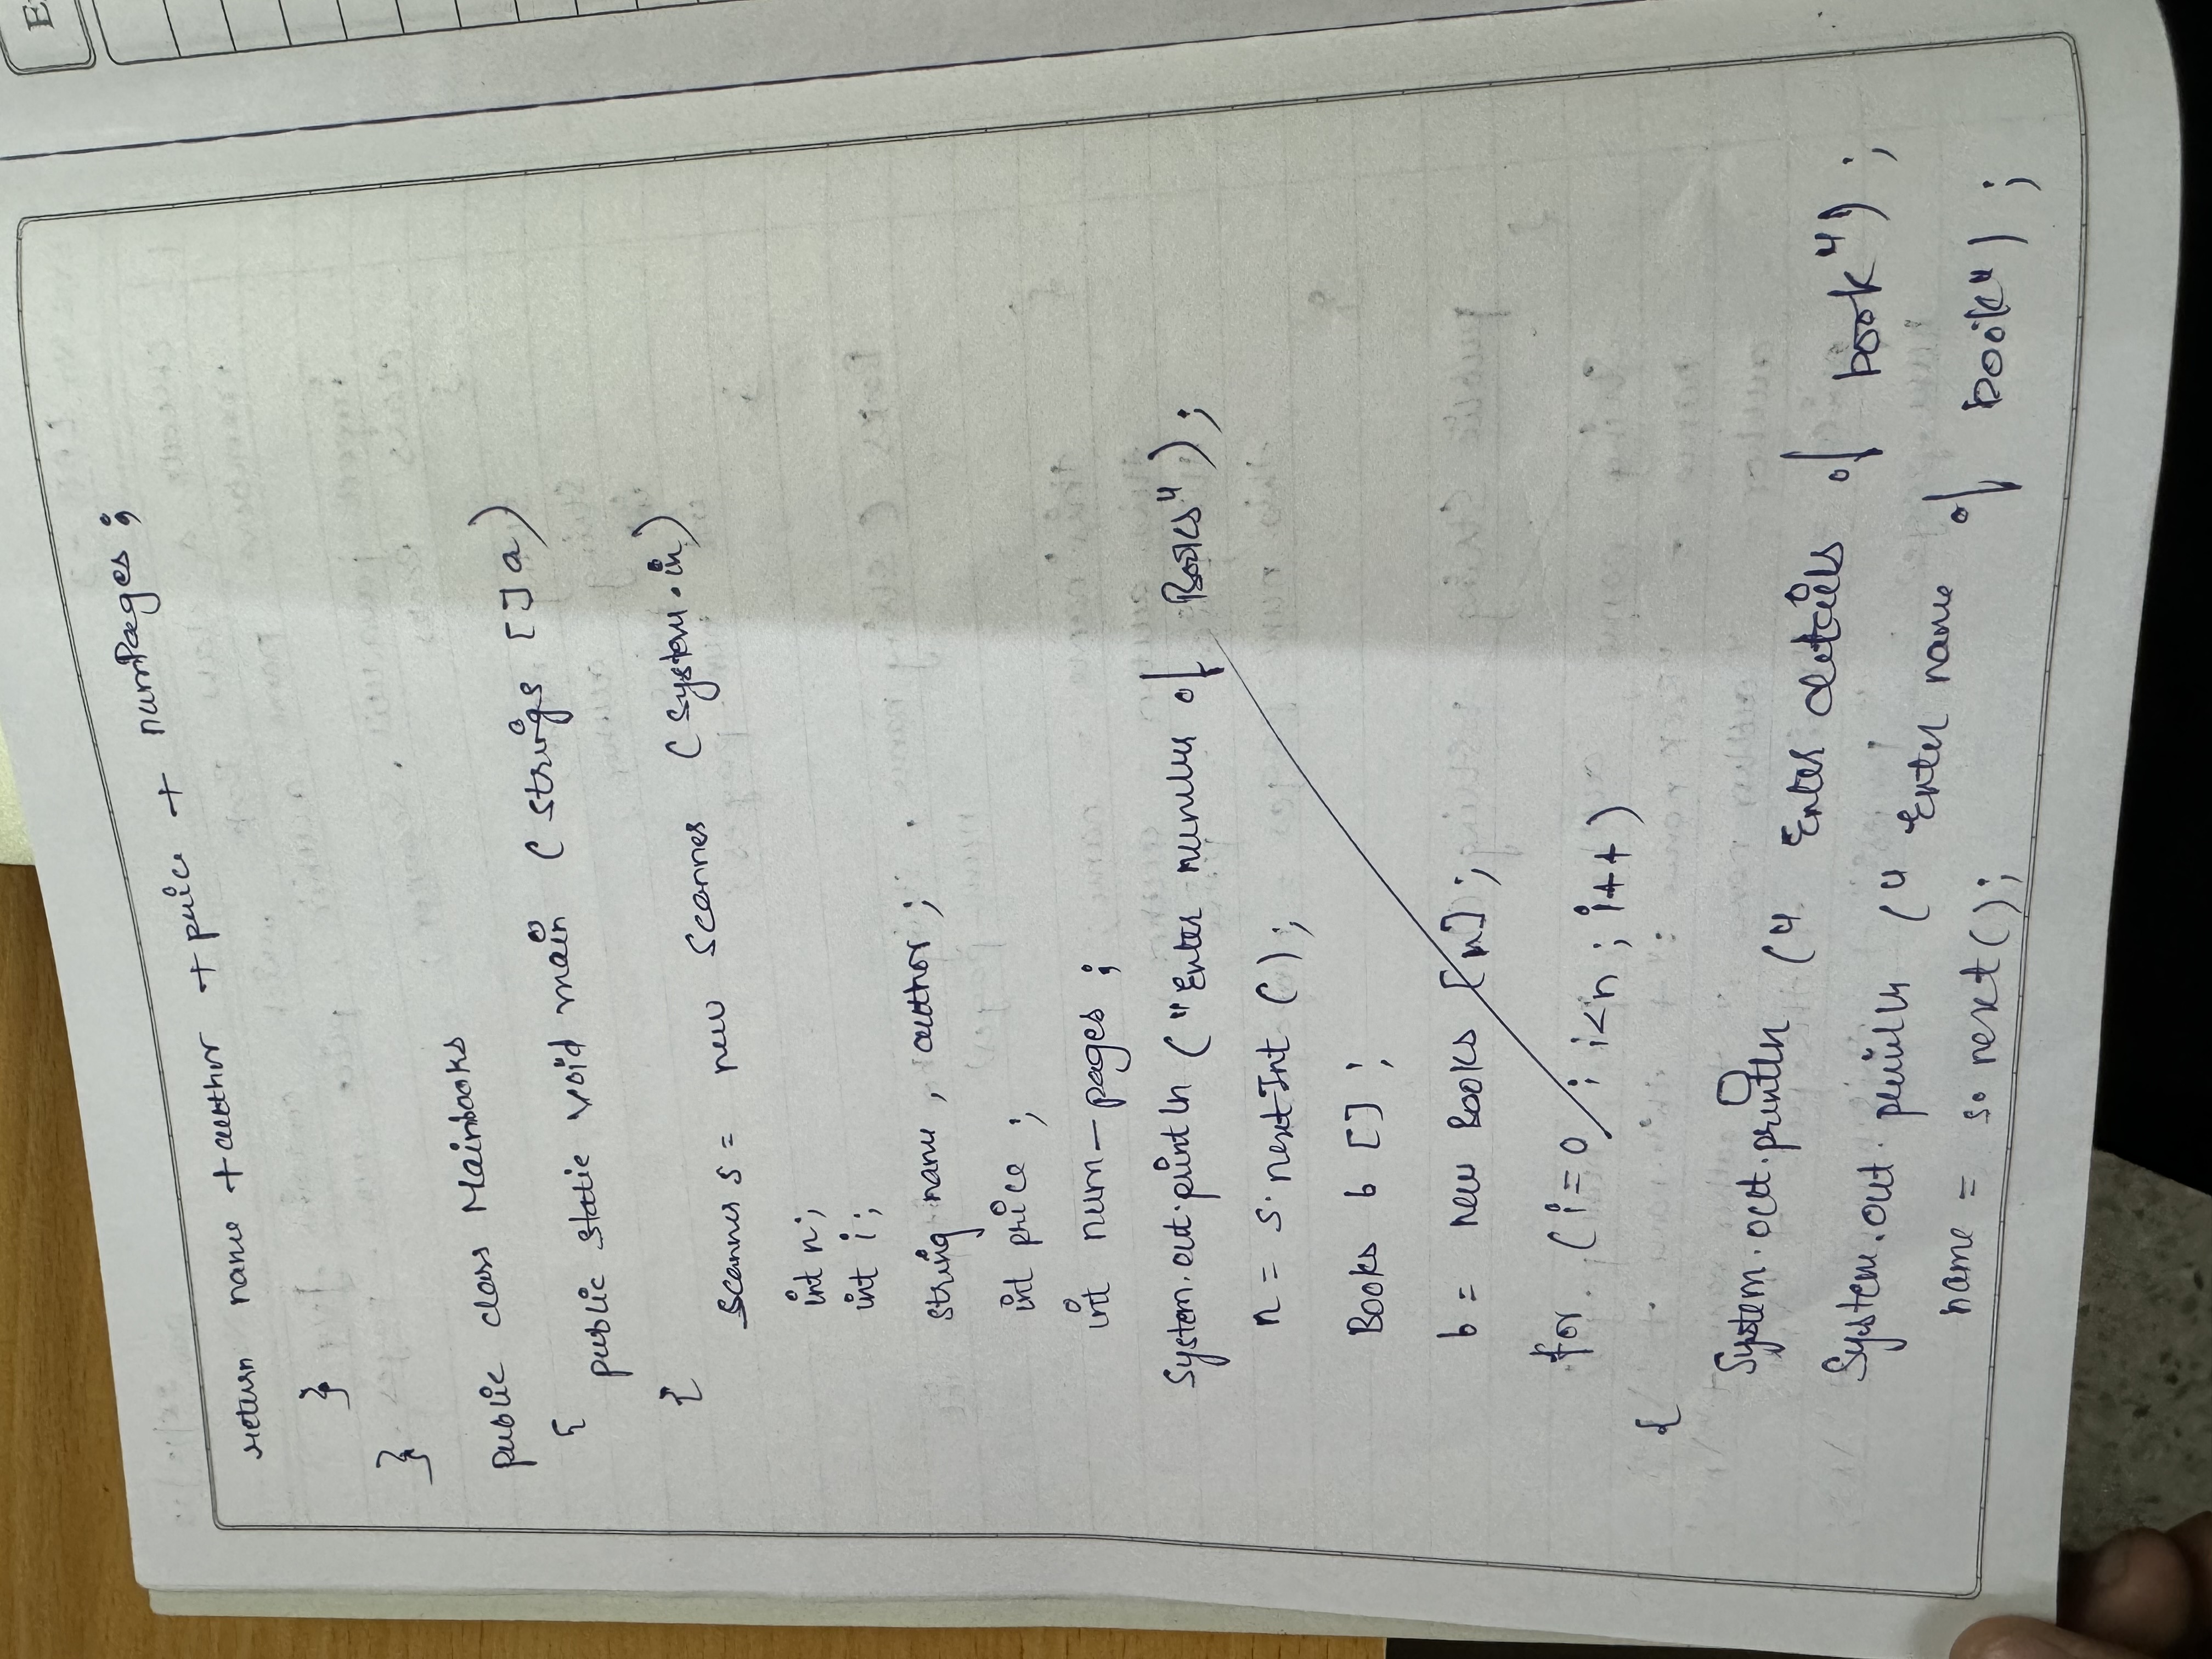 return name + author + price + numPages ;
}
}
public class Mainbooks
{
public static void main ( Strings [] a )
{
Scanner s = new Scanner ( System.in )
int n ;
int i ;
String name , author ;
int price ;
int num_pages ;
System.out.println ( "Enter number of Books" ) ;
n = s.nextInt ( ) ;
Books b [] ;
b = new Books [n] ;
for ( i = 0 ; i < n ; i++ )
{
System.out.println ( " Enter details of book" ) ;
System.out.println ( " Enter name of book" ) ;
name = s.next ( ) ;
E